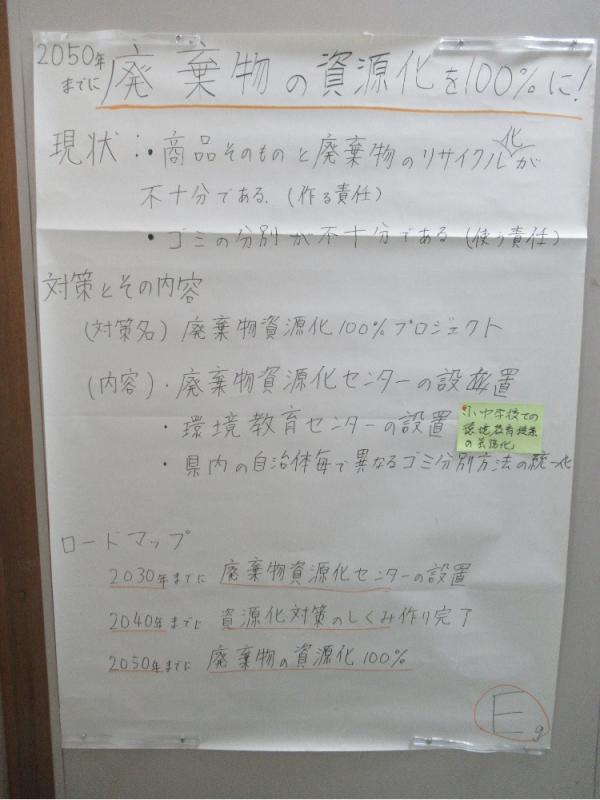 2050年
までに 廃棄物の資源化を100%に!
現状:・商品そのものと廃棄物のリサイクル化が
不十分である.(作る責任)
・ゴミの分別が不十分である(使う責任)
対策とその内容
(対策名)廃棄物資源化100%プロジェクト
(内容)・廃棄物資源化センターの設置
・環境教育センターの設置
小中学校での
環境教育授業
の義務化
・県内の自治体毎で異なるゴミ分別方法の統一化
ロードマップ
2030年までに 廃棄物資源化センターの設置
2040年までに 資源化対策のしくみ作り完了
2050年までに 廃棄物の資源化100%
Eg